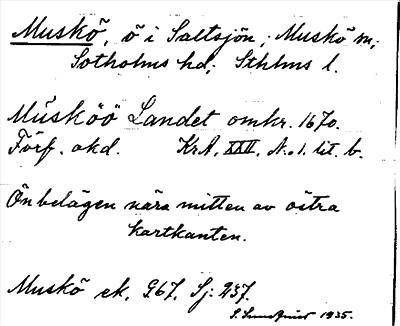 Muskö, ö i Saltsjön, Muskö sn;
Sotholms hd; Sthlms l.
Musköö Landet omkr. 1670.
Förf. okd. Kr.A. XXII. N.o 1. lit. b.
Ön belägen nära mitten av östra
kartkanten.
Muskö ek. 967. Sj: 237.
1935.